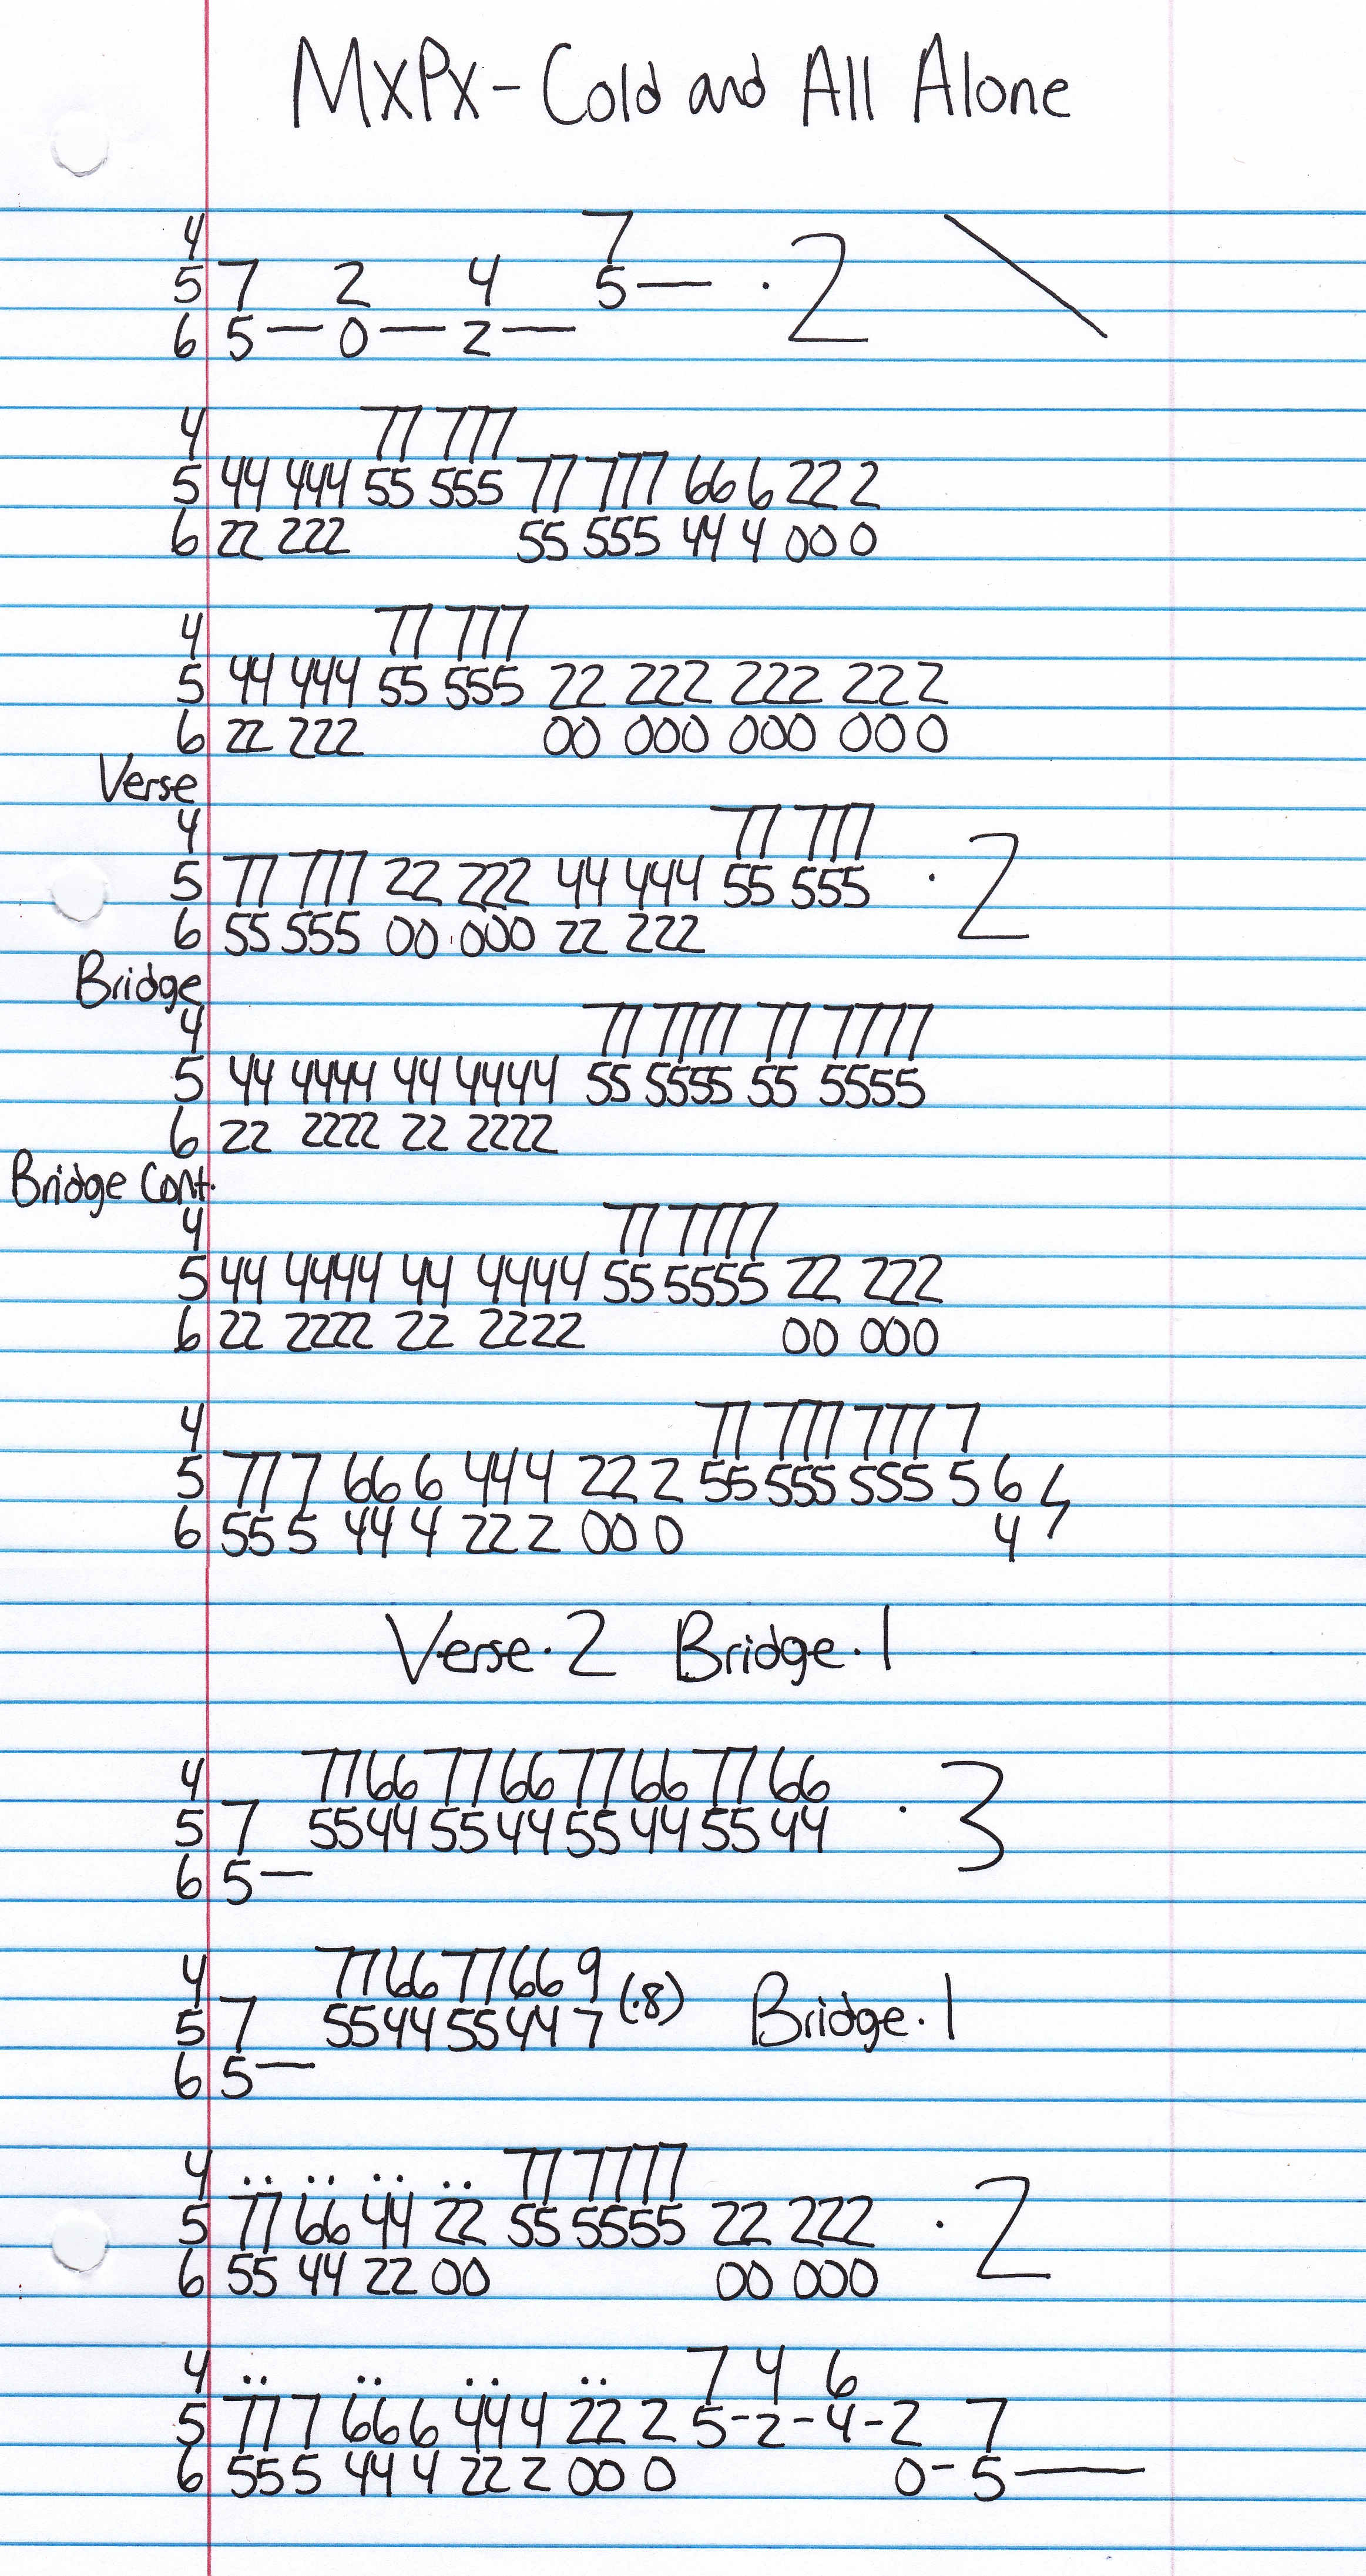 MxPx - Cold and All Alone
4 7
5 7 2 4 5— · 2 \
6 5— 0— 2—
4 77 777
5 44 444 55 555 77 777 66 6 22 2
6 22 222 55 555 44 4 00 0
4 77 777
5 44 444 55 555 22 222 222 22 2
6 22 222 00 000 000 00 0
Verse
4 77 777
5 77 777 22 222 44 444 55 555 · 2
6 55 555 00 000 22 222
Bridge
4 77 7777 77 7777
5 44 4444 44 4444 55 5555 55 5555
6 22 2222 22 2222
Bridge Cont.
4 77 7777
5 44 4444 44 4444 55 5555 22 222
6 22 2222 22 2222 00 000
4 77 777 777 7
5 77 7 66 6 44 4 22 2 55 555 555 5 6
6 55 5 44 4 22 2 00 0 4
Verse · 2 Bridge · 1
4 7766 7766 7766 7766
5 7 5544 5544 5544 5544 · 3
6 5—
4 7766 7766 9
5 7 5544 5544 7 (·8) Bridge · 1
6 5—
4 .. .. .. .. 77 7777
5 77 66 44 22 55 5555 22 222 · 2
6 55 44 22 00 00 000
4 .. .. .. .. 7 4 6
5 77 7 66 6 44 4 22 2 5-2-4-2 7
6 55 5 44 4 22 2 00 0 0-5—